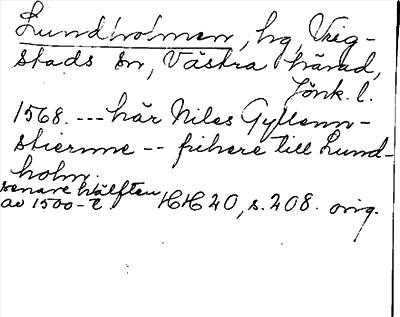 Lundholmen, hg, Vrig-
stads sn, Västra härad,
Jönk. l.
1568. --- här Niles Gyllenn-
stiernne -- frihere till Lund-
holm.
senare hälften
av 1500-t. HH 20, s. 208. orig.